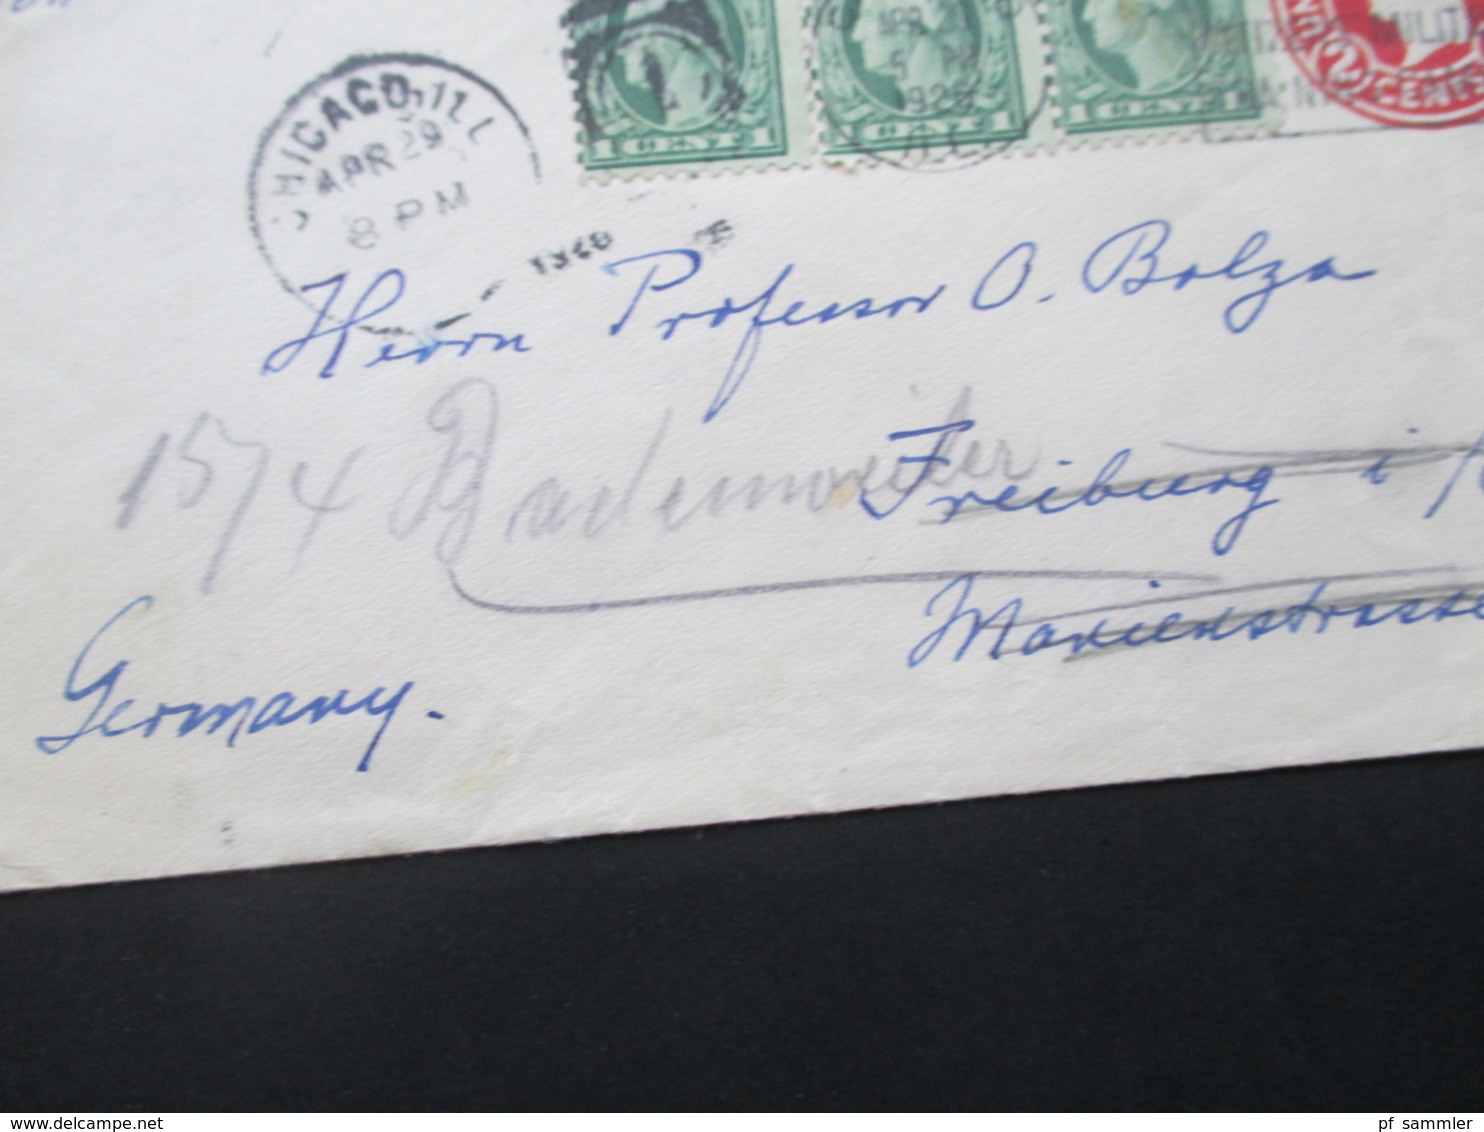 CHICAGO, ILL
APR 29
8 PM
1920
1 CENT 1
1 CENT 1
1 CENT 1
APR
5 PM
1920
2 CENTS
Herrn Professor O. Bolza
15/4 Badenweiler
Freiburg i
Marienstrasse
Germany.
pf sammler